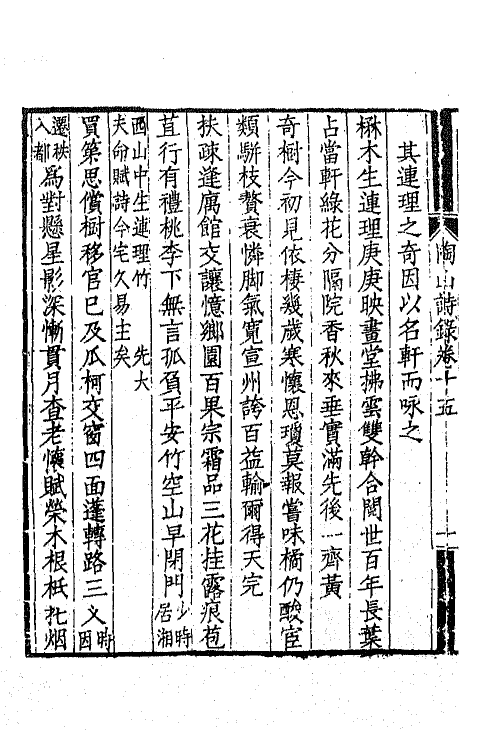 陶山詩録卷十五 一
其連理之奇因以名軒而咏之
楙木生連理庚庚映畫堂拂雲雙幹合閱世百年長葉
占當軒綠花分隔院香秋來垂實滿先後一齊黃
奇樹今初見依棲幾歲寒懷恩瓊莫報嘗味橘仍酸宦
類駢枝贅衰憐脚氣寬宣州誇百益輸爾得天完
扶疎逢厲館交讓憶鄉園百果宗霜品三花挂露痕苞
苴行有禮桃李下無言孤負平安竹空山早閉門少時居湘
西山中生連理竹 先大夫命賦詩今宅久易主矣
買第思償樹移官已及瓜柯交窗四面蓬轉路三乂時因
遷秩入都為對懸星影深慚貫月查老懷賦榮木根柢托烟